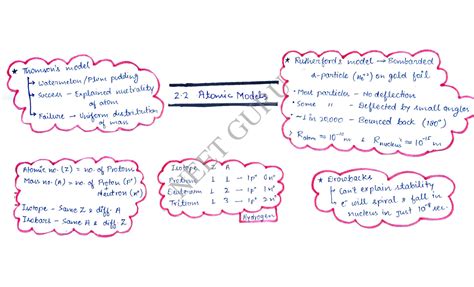 2.2 Atomic Models
* Thomson's model
→ Watermelon/Plum pudding
→ Success - Explained neutrality
of atom
→ Failure - Uniform distribution
of mass
* Rutherford's model → Bombarded
α-particle (He²⁺) on gold foil
• Most particle - No deflection
• Some " - Deflected by small angles
• ~1 in 20,000 - Bounced back (180°)
R atom ≈ 10⁻¹⁰ m & R nucleus ≈ 10⁻¹⁵ m
Atomic no. (Z) = no. of Protons
Mass no. (A) = no. of Proton (p⁺)
neutron (n°)
Isotope - Same Z & diff. A
Isobars - Same A & diff. Z
Isotope Z A
Protium 1 1 - 1p⁺ 0n°
Deuterium 1 2 - 1p⁺ 1n°
Tritium 1 3 - 1p⁺ 2n°
Hydrogen
* Drawbacks
• Can't explain stability
• e⁻ will spiral & fall in
nucleus in just 10⁻⁸ sec.
NEET GURU